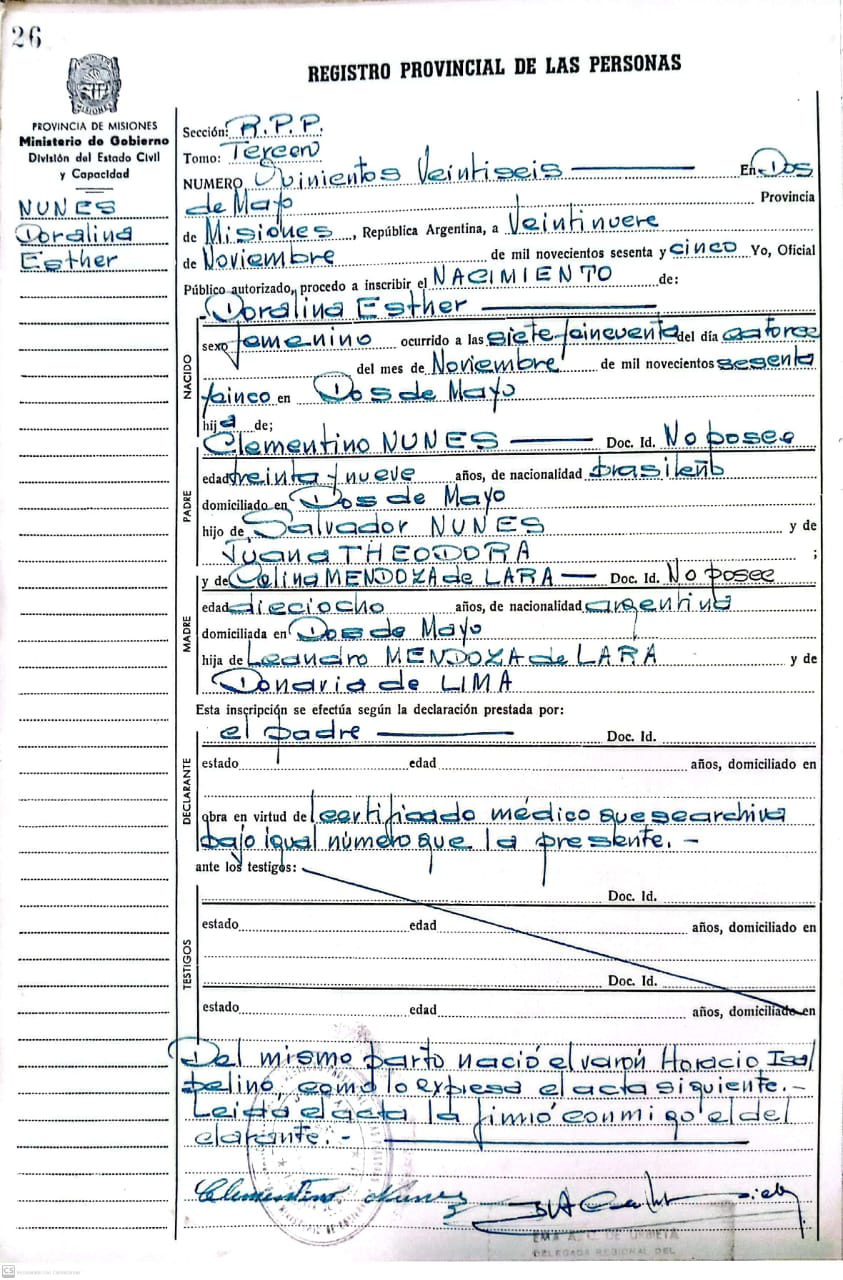 26
REGISTRO PROVINCIAL DE LAS PERSONAS
PROVINCIA DE MISIONES
Ministerio de Gobierno
División del Estado Civil
y Capacidad
NUNES
Doralina
Esther
Sección: R.P.P.
Tomo: Tercero
NUMERO Quinientos Veintiseis En Dos
de Mayo Provincia
de Misiones, República Argentina, a Veintinueve
de Noviembre de mil novecientos sesenta y cinco Yo, Oficial
Público autorizado, procedo a inscribir el NACIMIENTO de:
Doralina Esther
NACIDO
sexo femenino ocurrido a las siete y cincuenta del día catorce
del mes de Noviembre de mil novecientos sesenta
y cinco en Dos de Mayo
hija de;
Clementino NUNES Doc. Id. No posee
PADRE
edad treinta y nueve años, de nacionalidad brasileño
domiciliado en Dos de Mayo
hijo de Salvador NUNES y de
Juana THEODORA ;
y de Celina MENDOZA de LARA Doc. Id. No posee
MADRE
edad dieciocho años, de nacionalidad argentina
domiciliada en Dos de Mayo
hija de Leandro MENDOZA de LARA y de
Donaria de LIMA
Esta inscripción se efectúa según la declaración prestada por:
el padre Doc. Id.
DECLARANTE
estado edad años, domiciliado en
obra en virtud de certificado médico que se archiva
bajo igual número que la presente.-
ante los testigos:
Doc. Id.
TESTIGOS
estado edad años, domiciliado en
Doc. Id.
estado edad años, domiciliado en
Del mismo parto nació el varón Horacio
belino, como lo expresa el acta siguiente.-
Leida el acta la firmó conmigo el del
clarante.-
Clementino Nunes
EMA A. C. DE URBIETA
DELEGADA REGIONAL DEL
CS